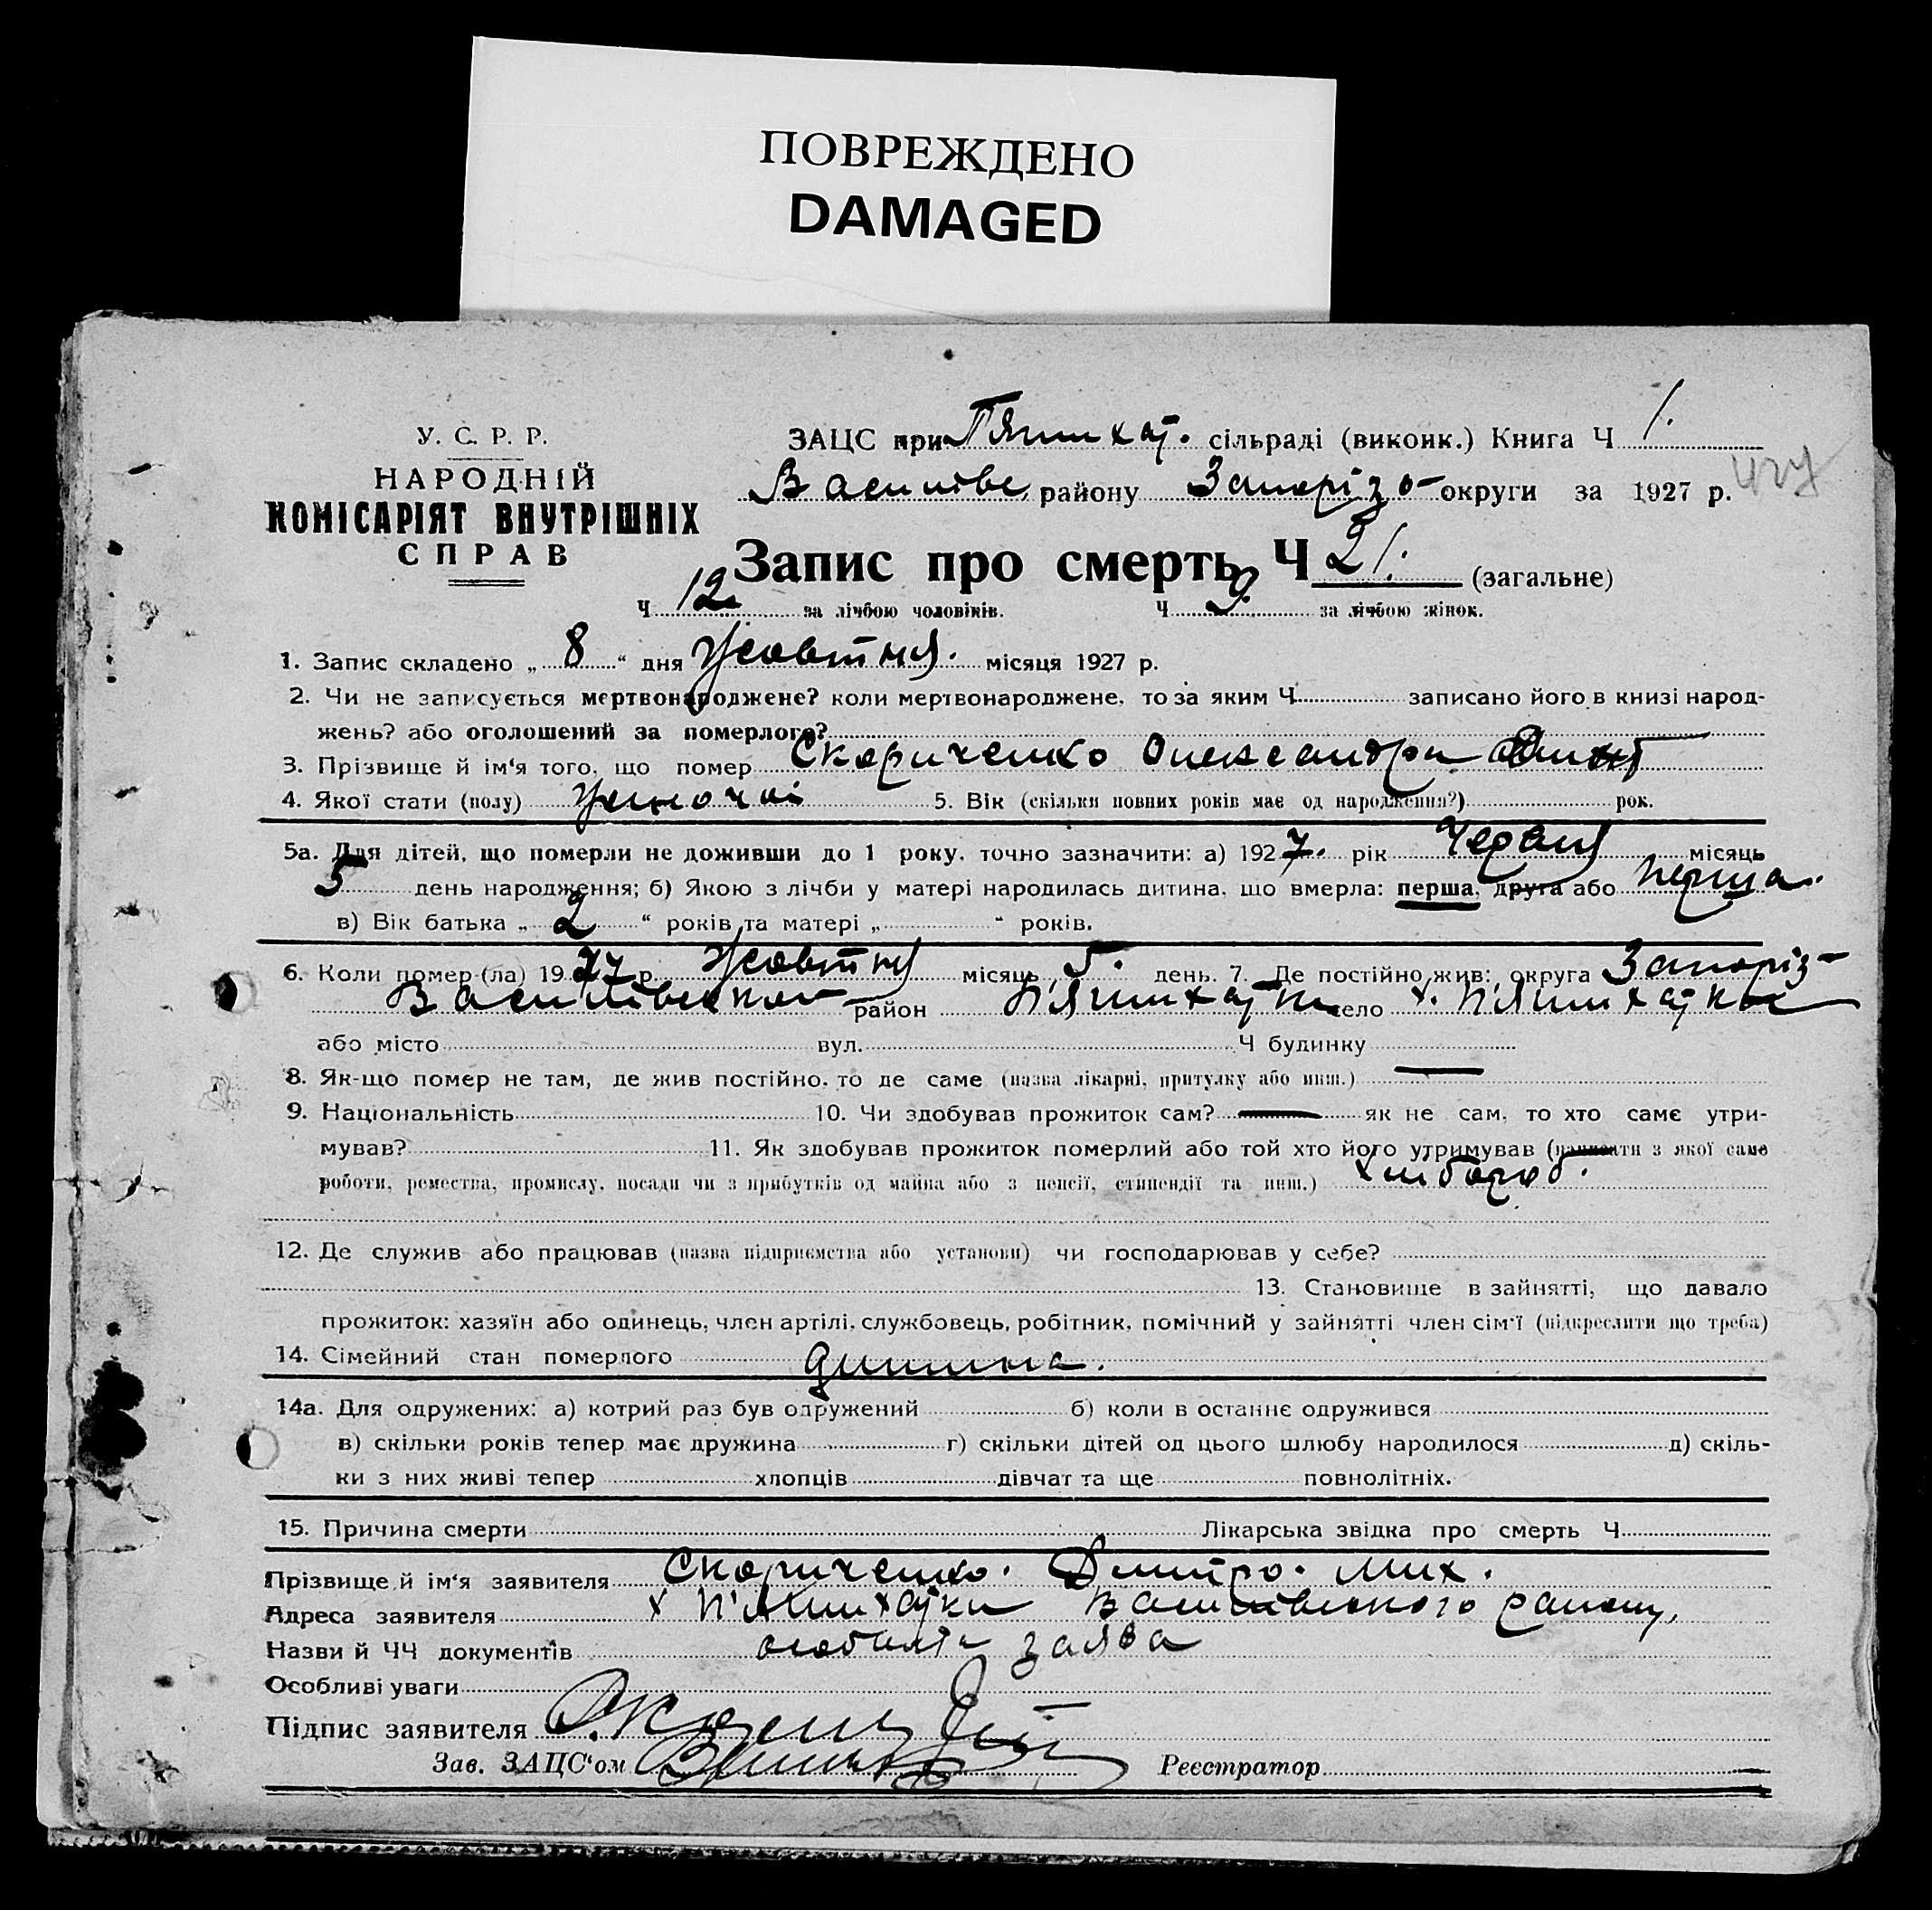 ПОВРЕЖДЕНО
DAMAGED
У. С. Р. Р.
НАРОДНІЙ
КОМІСАРІЯТ ВНУТРІШНІХ
СПРАВ
ЗАЦС при Пятихат. сільраді (виконк.) Книга Ч 1.
Василівс району Запоріз округи за 1927 р.
Запис про смерть Ч 21. (загальне)
Ч 12 за лічбою чоловіків. Ч 9. за лічбою жінок.
1. Запис складено „ 8 “ дня Жовтня. місяця 1927 р.
2. Чи не записується мертвонароджене? коли мертвонароджене, то за яким Ч записано його в книзі народ-
жень? або оголошений за померлого?
3. Прізвище й ім‘я того, що помер Скориченко Олександра
4. Якої стати (полу) жіночої 5. Вік (скільки повних років має од народження?) рок.
5а. Для дітей, що померли не доживши до 1 року, точно зазначити: а) 1927. рік Червня місяць
5 день народження; б) Якою з лічби у матері народилась дитина, що вмерла: перша, друга або перша.
в) Вік батька „ 2 “ років та матері „ “ років.
6. Коли помер (ла) 1927 р. Жовтня місяць 5. день. 7. Де постійно жив: округа Запоріз-
Василівський район Пятихатки село х. Пятихатки
або місто вул. Ч будинку
8. Як-що помер не там, де жив постійно, то де саме (назва лікарні, притулку або инш.) —
9. Національність 10. Чи здобував прожиток сам? — як не сам, то хто саме утри-
мував? 11. Як здобував прожиток померлий або той хто його утримував (написати з якої саме
роботи, ремества, промислу, посади чи з прибутків од майна або з пенсії, стипендії та инш.) хлібороб.
12. Де служив або працював (назва підприємства або установи) чи господарював у себе?
13. Становище в зайнятті, що давало
прожиток: хазяїн або одинець, член артілі, службовець, робітник, помічний у зайнятті член сім‘ї (підкреслити що треба)
14. Сімейний стан померлого дитина.
14а. Для одружених: а) котрий раз був одружений б) коли в останнє одружився
в) скільки років тепер має дружина г) скільки дітей од цього шлюбу народилося д) скіль-
ки з них живі тепер хлопців дівчат та ще повнолітніх.
15. Причина смерти Лікарська звідка про смерть Ч
Прізвище й ім‘я заявителя Скориченко. Дмитро. Мих.
Адреса заявителя х П'ятихатки Василівського району.
Назви й ЧЧ документів особиста заява
Особливі уваги
Підпис заявителя
Зав. ЗАЦС‘ом Реєстратор